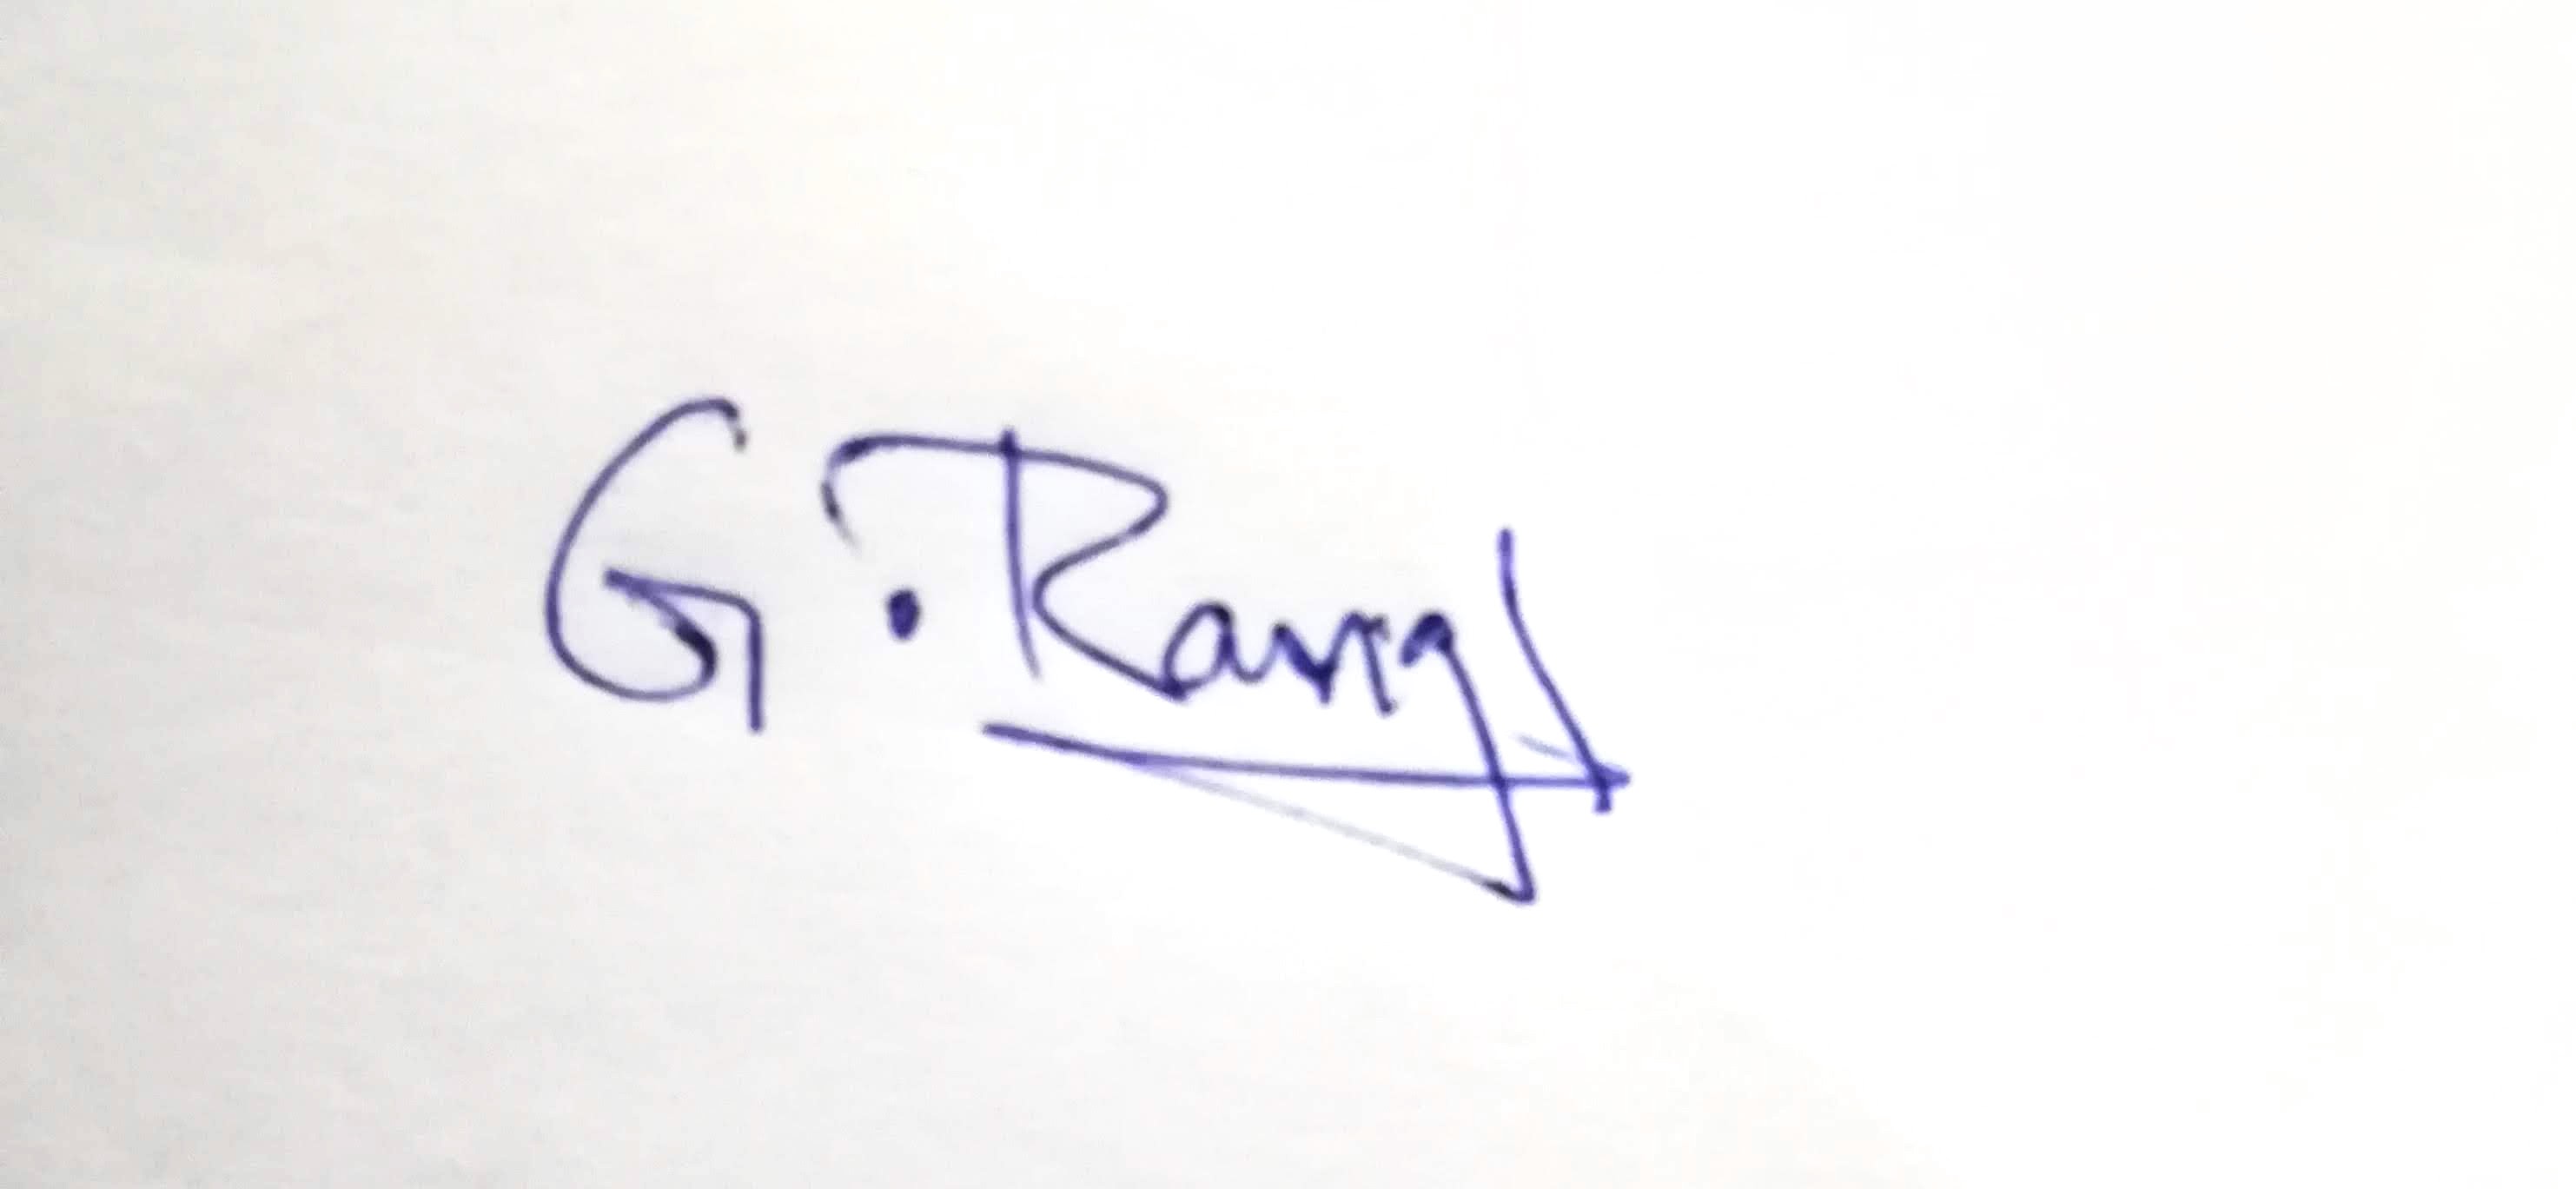 G. Rang